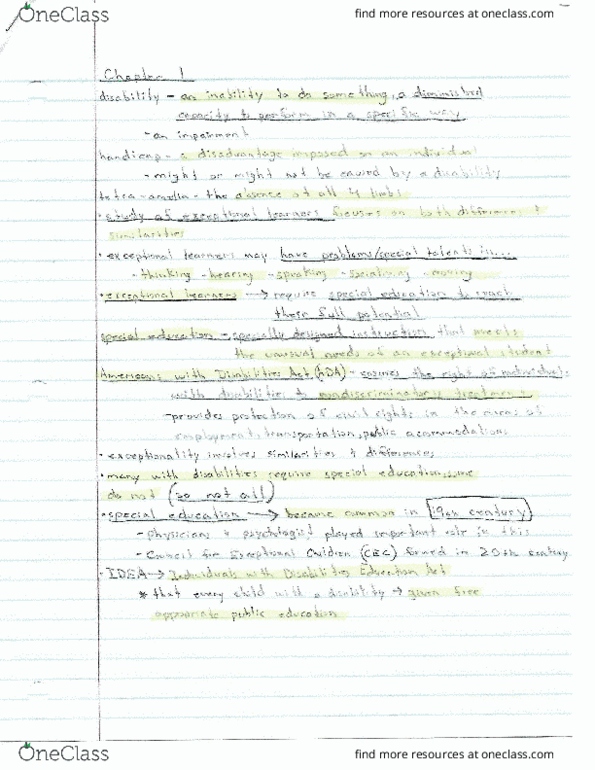 OneClass
find more resources at oneclass.com
Chapter 1
disability - an inability to do something, a diminished
capacity to perform in a specific way
- an impairment
handicap - a disadvantage imposed on an individual
- might or might not be caused by a disability
tetra-amelia - the absence of all 4 limbs
• study of exceptional learners focuses on both differences &
similarities
• exceptional learners may have problems/special talents in...
- thinking - hearing - speaking - socializing - moving
• exceptional learners → require special education to reach
their full potential
special education - specially designed instruction that meets
the unusual needs of an exceptional student
Americans with Disabilities Act (ADA) - ensures the right of individuals
with disabilities to nondiscriminatory treatment
- provides protection of civil rights in the areas of
employment, transportation, public accommodations
• exceptionality involves similarities & differences
• many with disabilities require special education, some
do not (so not all)
• special education → became common in 19th century
- physicians & psychologist played important role in this
- Council for Exceptional Children (CEC) formed in 20th century
• IDEA → Individuals with Disabilities Education Act
* that every child with a disability → given free
appropriate public education
OneClass
find more resources at oneclass.com